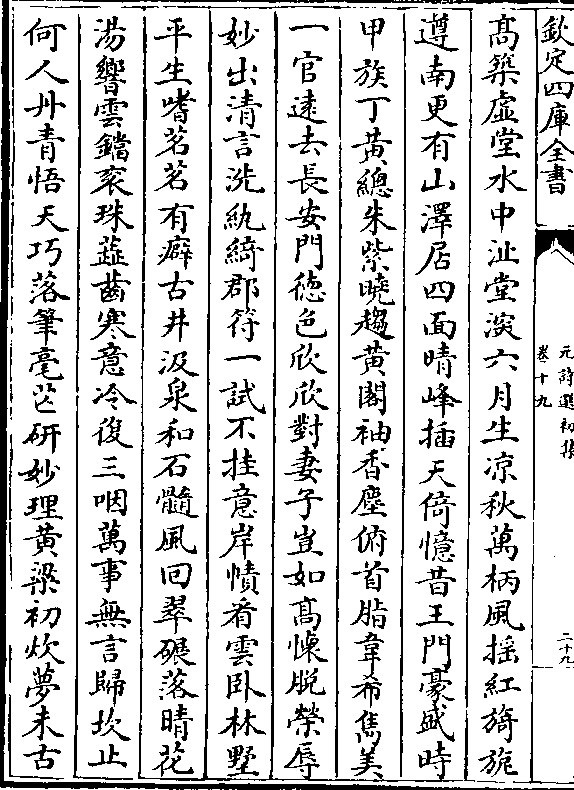 欽定四庫全書
元詩選初集
卷十九
二十九
髙築虛堂水中沚堂深六月生凉秋萬柄風揺紅旖旎
遵南更有山澤居四面晴峰插天倚憶昔王門豪盛時
甲族丁黃總朱紫曉趨黃閣袖香塵俯首脂韋希雋美
一官逺去長安門徳色欣欣對妻子豈如髙悚脫榮辱
妙出清言洗紈綺郡符一試不挂意岸幘看雲卧林墅
平生嗜茗茗有癖古井汲泉和石髓風回翠碾落晴花
湯響雲鐺衮珠蕋齒寒意冷復三咽萬事無言歸坎止
何人丹青悟天巧落筆毫芒研妙理黃粱初炊夢未古